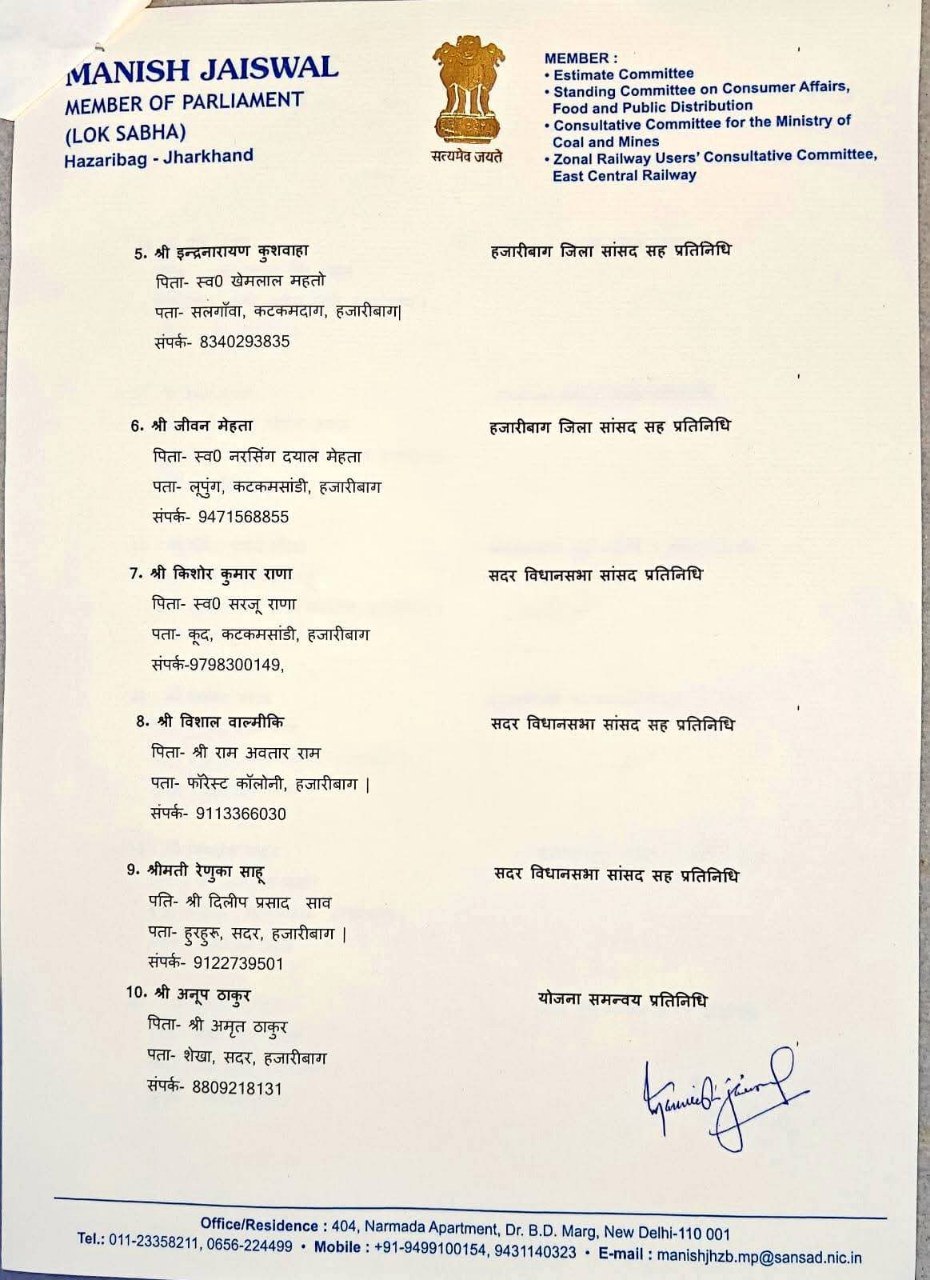 MANISH JAISWAL
MEMBER OF PARLIAMENT
(LOK SABHA)
Hazaribag - Jharkhand
सत्यमेव जयते
MEMBER :
• Estimate Committee
• Standing Committee on Consumer Affairs,
Food and Public Distribution
• Consultative Committee for the Ministry of
Coal and Mines
• Zonal Railway Users' Consultative Committee,
East Central Railway
5. श्री इन्द्रनारायण कुशवाहा हजारीबाग जिला सांसद सह प्रतिनिधि
पिता- स्व0 खेमलाल महतो
पता- सलगाँवा, कटकमदाग, हजारीबाग|
संपर्क- 8340293835
6. श्री जीवन मेहता हजारीबाग जिला सांसद सह प्रतिनिधि
पिता- स्व0 नरसिंग दयाल मेहता
पता- लूपुंग, कटकमसांडी, हजारीबाग
संपर्क- 9471568855
7. श्री किशोर कुमार राणा सदर विधानसभा सांसद प्रतिनिधि
पिता- स्व0 सरजू राणा
पता- कूद, कटकमसांडी, हजारीबाग
संपर्क-9798300149,
8. श्री विशाल वाल्मीकि सदर विधानसभा सांसद सह प्रतिनिधि
पिता- श्री राम अवतार राम
पता- फॉरेस्ट कॉलोनी, हजारीबाग |
संपर्क- 9113366030
9. श्रीमती रेणुका साहू सदर विधानसभा सांसद सह प्रतिनिधि
पति- श्री दिलीप प्रसाद साव
पता- हुरहुरू, सदर, हजारीबाग |
संपर्क- 9122739501
10. श्री अनूप ठाकुर योजना समन्वय प्रतिनिधि
पिता- श्री अमृत ठाकुर
पता- शेखा, सदर, हजारीबाग
संपर्क- 8809218131
Manish Jaiswal
Office/Residence : 404, Narmada Apartment, Dr. B.D. Marg, New Delhi-110 001
Tel.: 011-23358211, 0656-224499 • Mobile : +91-9499100154, 9431140323 • E-mail : manishjhzb.mp@sansad.nic.in